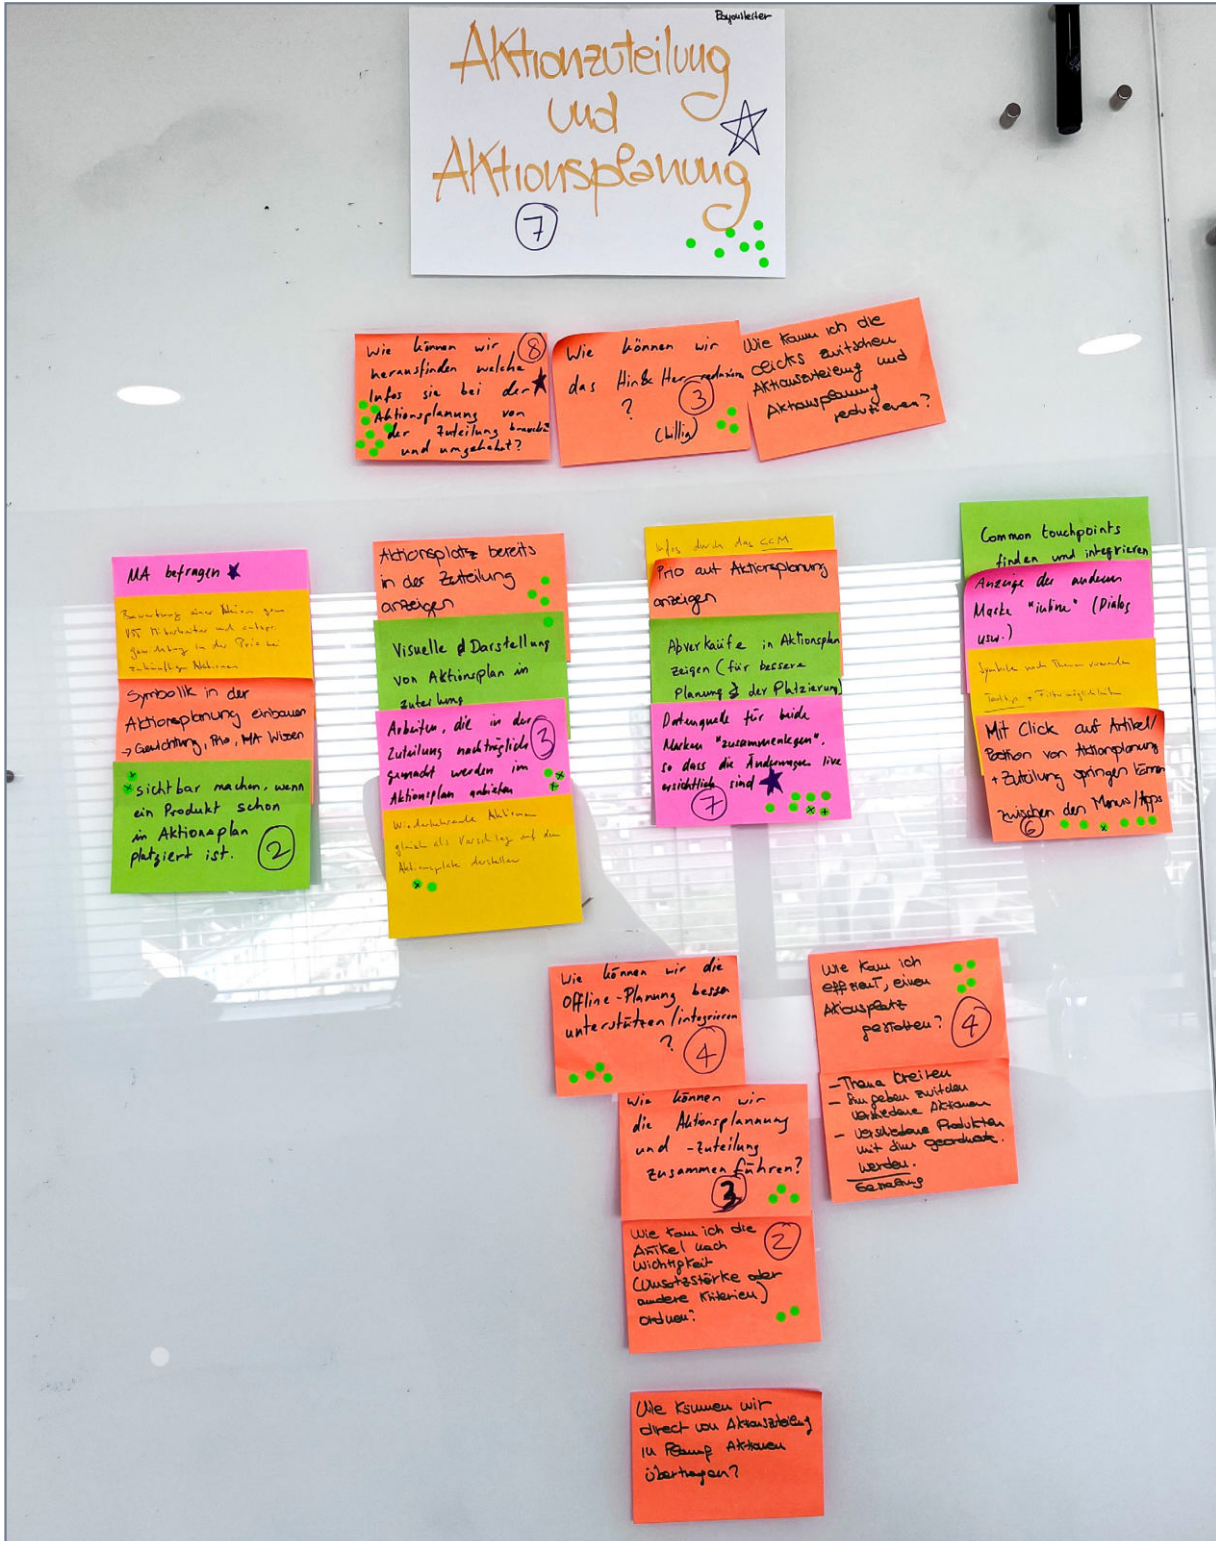 Aktionzuteilung
und
Aktionsplanung
7
Wie können wir
herausfinden welche
Infos sie bei der
Aktionsplanung von
der Zuteilung
und umgekehrt?
8
Wie können wir
das Hin & Her
?
3
(billig)
Wie kann ich die
clicks zwitschen
Aktionszuteilung und
Aktionsplanung
reduzieren?
MA befragen
Symbolik in der
Aktionsplanung einbauen
→ Gewichtung, Prio, MA Wissen
sichtbar machen, wenn
ein Produkt schon
in Aktionsplan
platziert ist.
2
Aktionsplatz bereits
in der Zuteilung
anzeigen
Visuelle Darstellung
von Aktionsplan in
Zuteilung
Arbeiten, die in der
Zuteilung nachträglich
gemacht werden im
Aktionsplan anbieten
3
Wiederkehrende Aktionen
gleich als Vorschlag auf dem
Aktionsplatz darstellen
Infos durch das CCM
Prio auf Aktionsplanung
anzeigen
Abverkäufe in Aktionsplan
zeigen (für bessere
Planung der Platzierung)
Datenquelle für beide
Masken "zusammenlegen",
so dass die Änderungen live
ersichtlich sind
7
Common touchpoints
finden und integrieren
Anzeige der anderen
Maske "inline" (Dialog
usw.)
Mit Click auf Artikel/
Position von Aktionplanung
+ Zuteilung springen können
zwischen den Menus/Apps
6
Wie können wir die
Offline-Planung besser
unterstützen/integrieren
?
4
Wie können wir
die Aktionsplannung
und -Zuteilung
zusammen führen?
3
Wie kann ich die
Artikel nach
Wichtigkeit
(Umsatzstärke oder
andere Kriterien)
ordnen?
2
Wie kann ich
effizient, einen
Aktionsplatz
gestalten?
4
- Thema kreiren
-
verschiedene Aktionen
- verschiedene Produkten
mit
werden.
Gestaltung
Wie können wir
direct von Aktionszuteilung
in Planung Aktionen
übertragen?